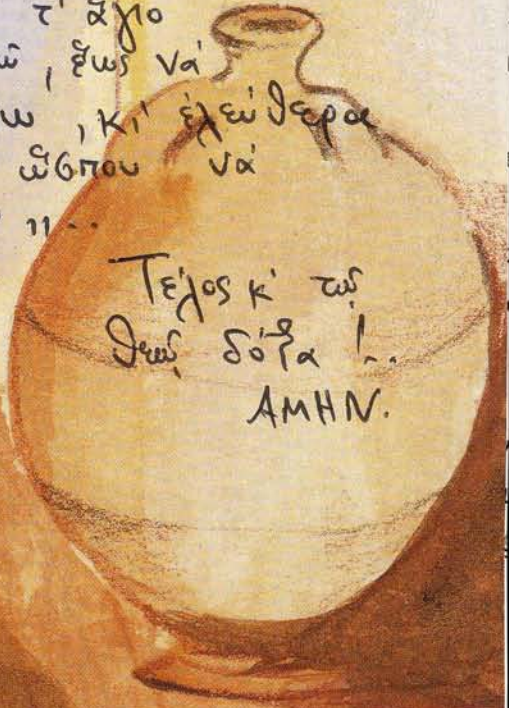 τ' ἅγιο
, ἕως νά
, κι' ἐλεύθερα
ὥσπου νά
..
Τέλος κ' τῷ
Θεῷ δόξα !..
ΑΜΗΝ.